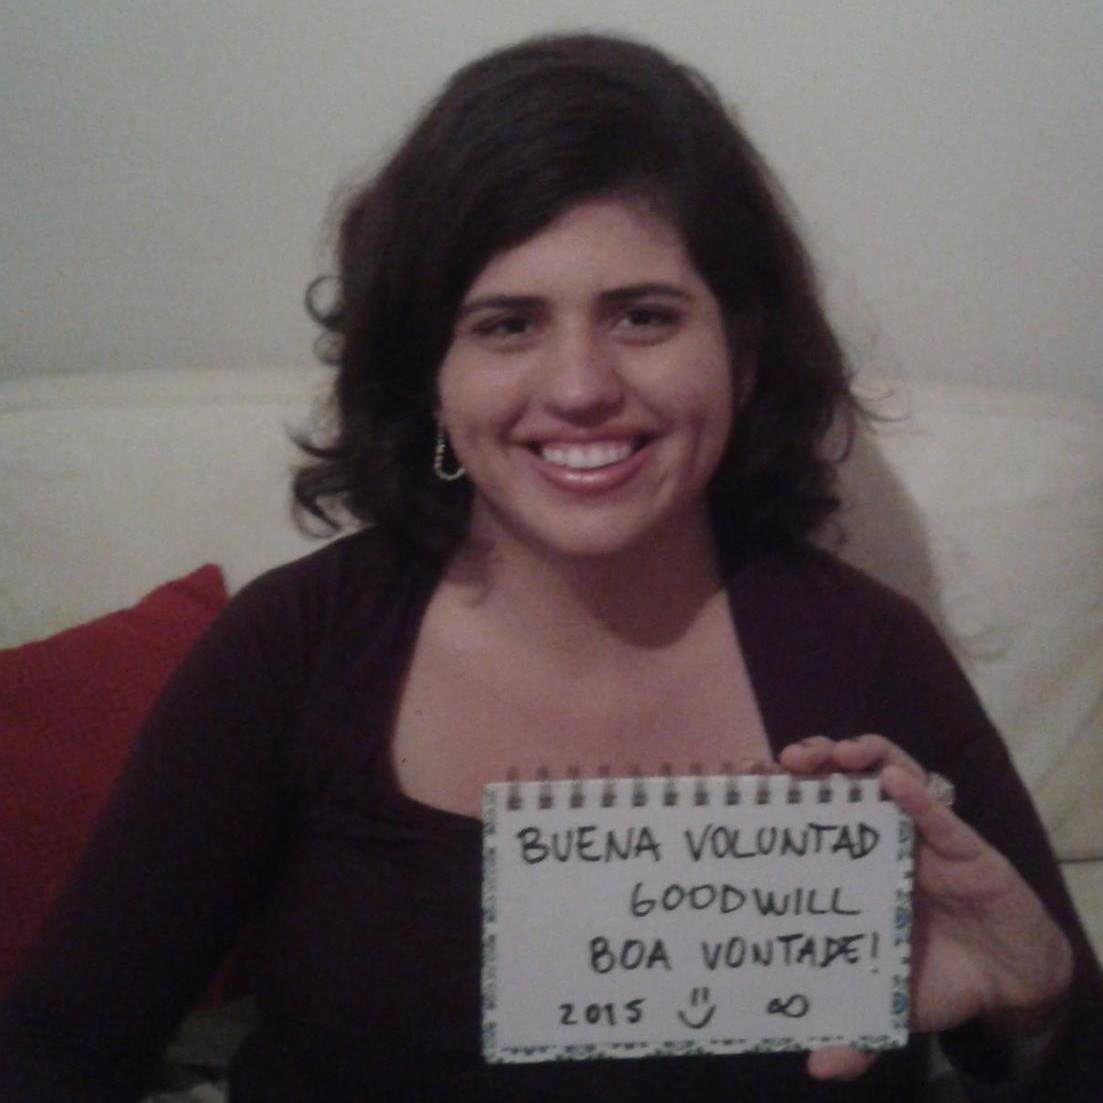 BUENA VOLUNTAD
GOODWILL
BOA VONTADE!
2015 ∞